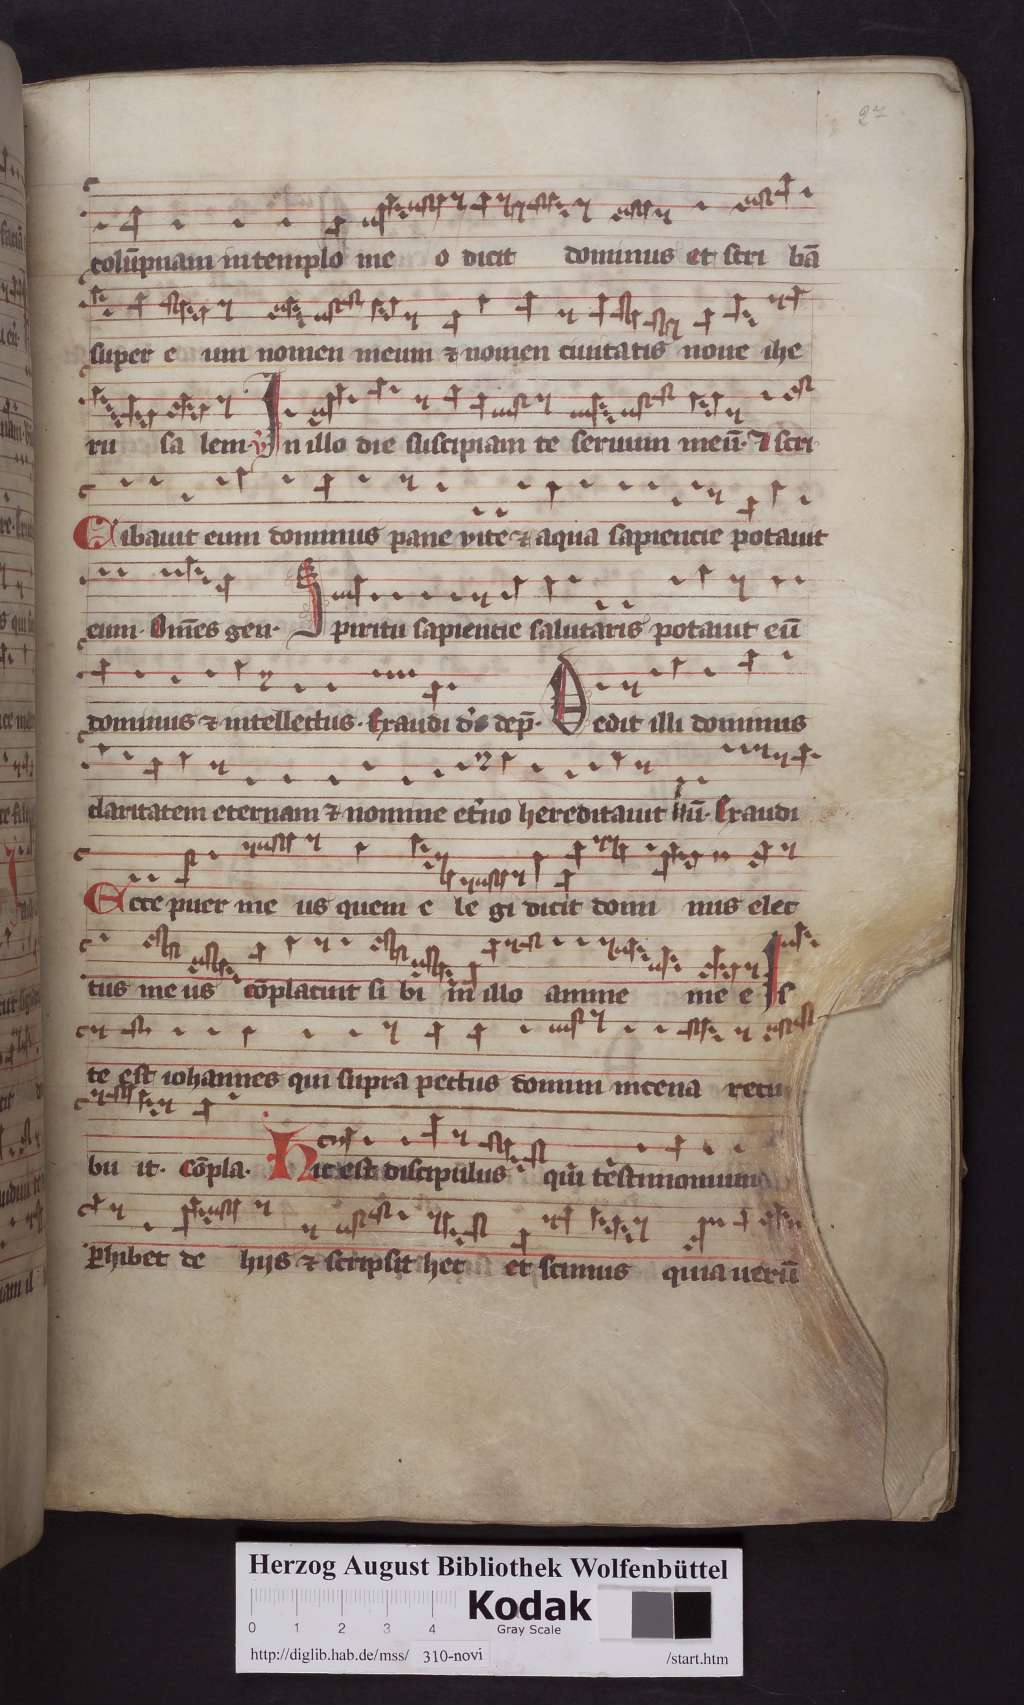 27
colūpnam in templo me o dicit dominus et scri bā
super e um nomen meum ⁊ nomen ciuitatis noue ihe
ru sa lem. V In illo die suscipiam te seruum meū. Et scri
Cibauit eum dominus pane vite ⁊ aqua sapiencie potauit
eum. Om̄es gen. Spiritu sapiencie salutaris potauit eū
dominus ⁊ intellectus. Exaudi d's dep̄. Dedit illi dominus
claritatem eternam ⁊ nomine et'no hereditauit illū. Exaudi
Ecce puer me us quem e le gi dicit domi nus elec
tus me us cōplacuit si bi in illo anime me e Is
te est iohannes qui supra pectus domini in cena recu
bu it. Cōpla. Hic est discipulus qui testimonium
ꝑhibet de hijs ⁊ scripsit hec et scimus quia uerū
Herzog August Bibliothek Wolfenbüttel
0 1 2 3 4
Kodak
Gray Scale
http://diglib.hab.de/mss/ 310-novi /start.htm